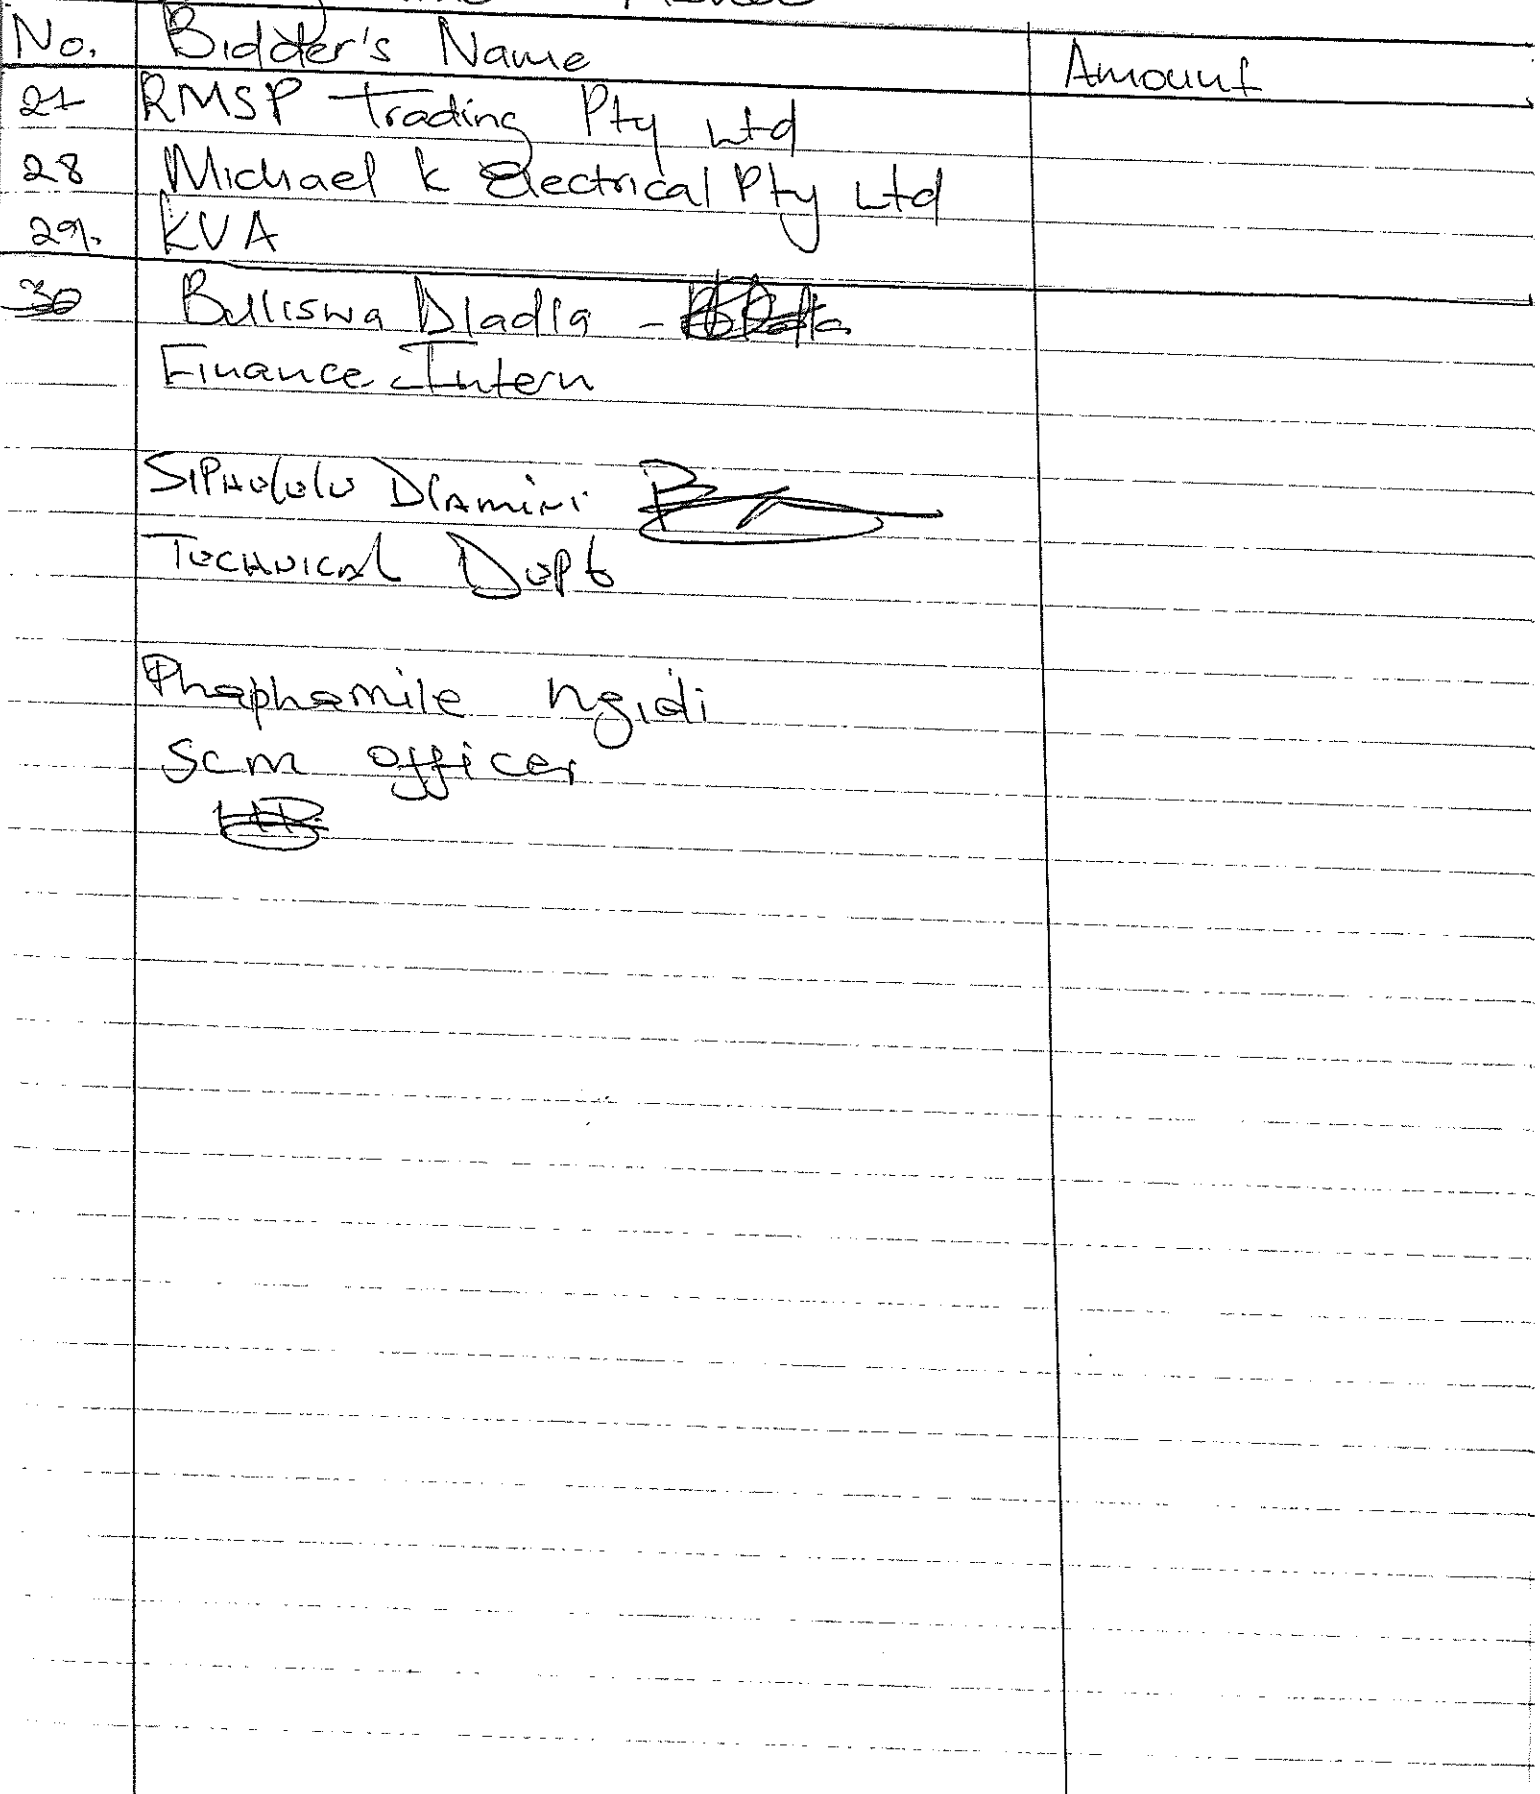 No. Bidder's Name Amount
27 RMSP Trading Pty Ltd
28 Michael K Electrical Pty Ltd
29. KVA
30 Buliswa Dladla -
Finance Intern
Siphululu Dlamini
Technical Dept
Phaphamile Ngidi
Scm officer